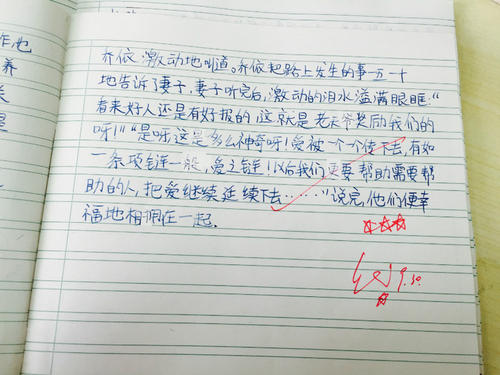 乔依激动地叫道。乔依把路上发生的事一五一十
地告诉了妻子,妻子听完后,激动的泪水溢满眼眶:“
看来好人还是有好报的,这就是老天爷奖励我们的
呀!”“是呀这是多么神奇呀!爱被一个一个传下去,有如
一条项链一般,爱之链!以后我们更要帮助需要帮
助的人,把爱继续延续下去……”说完,他们便幸
福地相拥在一起.
9.10.